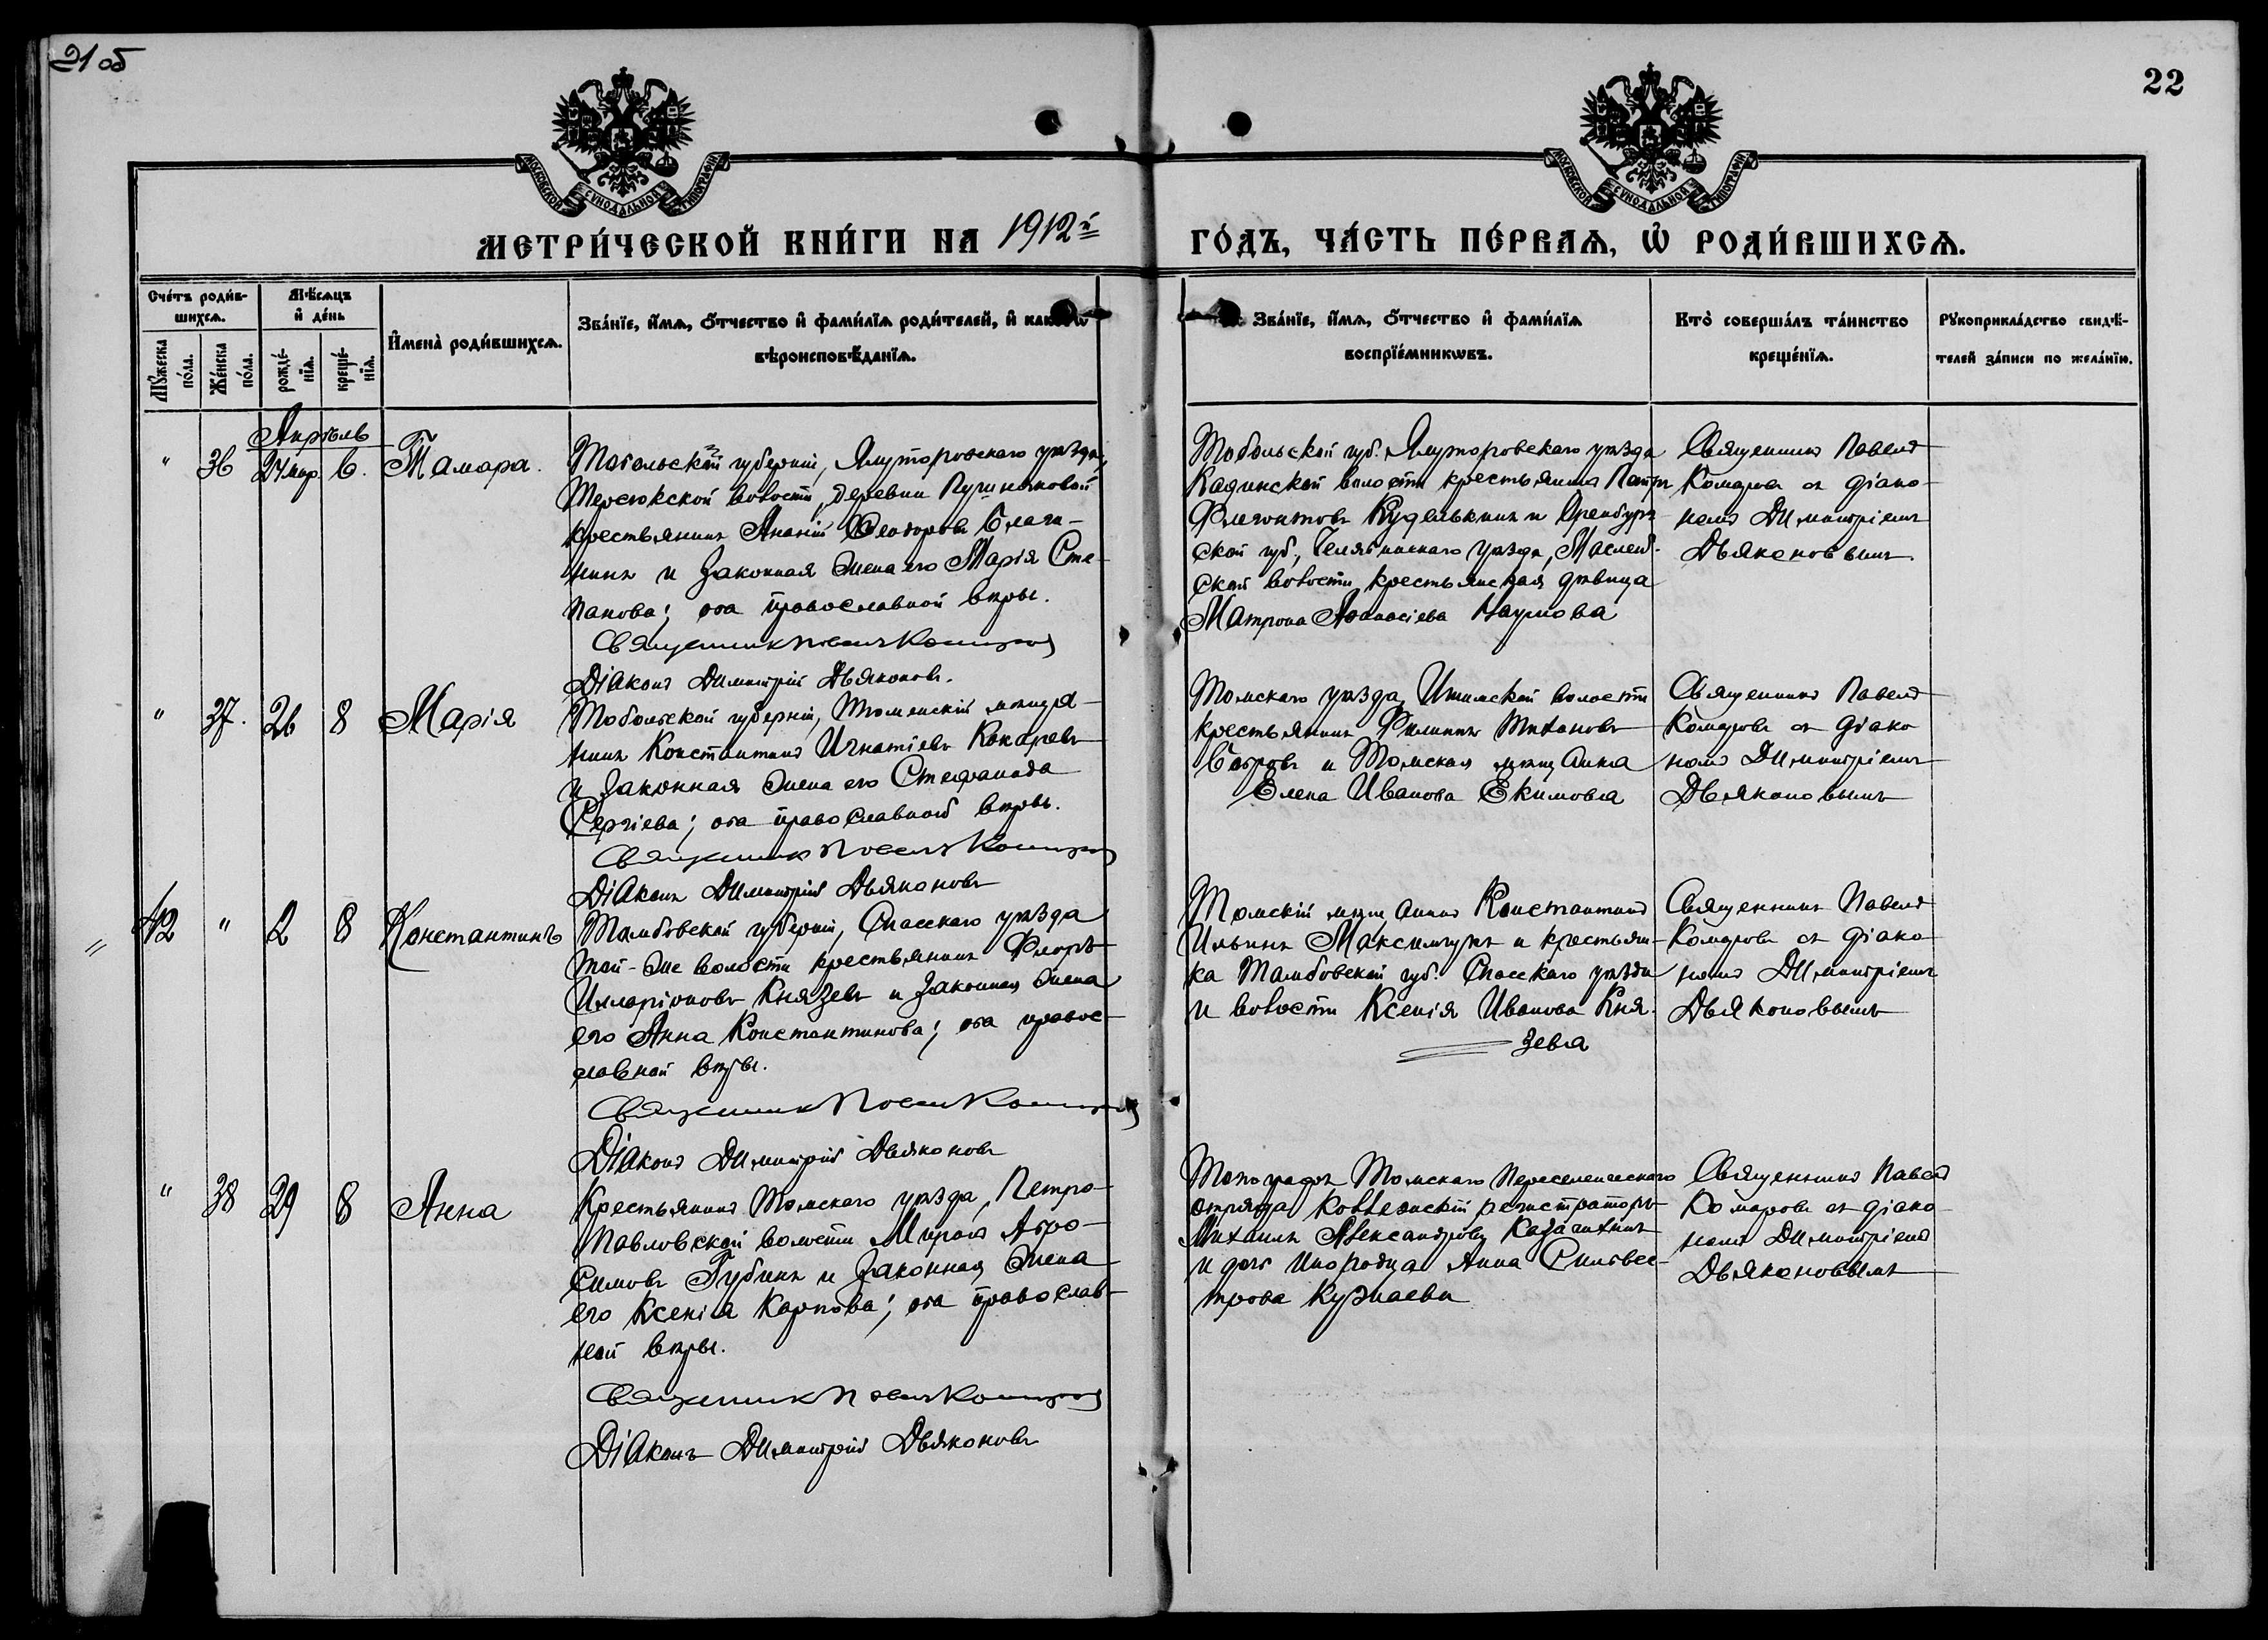 21 об
22
МОСКОВСКОЙ СѴНОДАЛЬНОЙ ТИПОГРАФІИ
МОСКОВСКОЙ СѴНОДАЛЬНОЙ ТИПОГРАФІИ
МЕТРИ́ЧЕСКОЙ КНИ́ГИ НА 1912й ГО́ДЪ, ЧА́СТЬ ПЕ́РВАѦ, Ѡ҆ РОДИ́ВШИХСѦ.
Сче́тъ роди́в-
шихсѧ.
Мѣ́сѧцъ
и҆ де́нь
Мꙋ́жеска
по́ла.
Же́нска
по́ла.
рожде́-
нїѧ.
креще́-
нїѧ.
И҆мена̀ роди́вшихсѧ.
Зва́нїе, и҆́мѧ, ѻ҆́тчество и҆ фами́лїѧ роди́телей, и҆
вѣроисповѣ́данїѧ.
Зва́нїе, и҆́мѧ, ѻ҆́тчество и҆ фами́лїѧ
воспрїе́мникѡвъ.
Кто̀ соверша́лъ та́инство
креще́нїѧ.
Рꙋкоприкла́дство свидѣ́-
телей за́писи по жела́нїю.
Апрѣль
" 36 24 мар. 6. Тамара.
Тобольской губерніи, Ялуторовскаго уѣзда,
Терсюкской волости, деревни
крестьянинъ Ананій Ѳеодоровъ
нинъ и законная жена его Марія Сте-
панова; оба православной вѣры.
Священникъ Павелъ Комаровъ
Діаконъ Димитрій Дьяконовъ.
Тобольской губ. Ялуторовскаго уѣзда
волости крестьянинъ Петръ
Флегонтовъ Куделькинъ и Оренбург-
ской губ., Челябинскаго уѣзда, Маслей-
ской волости, крестьянская дѣвица
Матрона Аѳанасіева Наумова
Священникъ Павелъ
Комаровъ съ діако-
номъ Димитріемъ
Дьяконовымъ.
" 37. 26 8 Марія
Тобольской губерніи, Тюменскій мѣща-
нинъ Константинъ Игнатіевъ Кокаревъ
и законная жена его Стефанида
Сергіева; оба православной вѣры.
Священникъ Павелъ Комаровъ
Діаконъ Димитрій Дьяконовъ
Томскаго уѣзда, Ишимской волости
крестьянинъ Филиппъ Тихоновъ
Бобровъ и Томская мѣщанка
Елена Иванова Екимова
Священникъ Павелъ
Комаровъ съ діако
номъ Димитріемъ
Дьяконовымъ
42 " 2 8 Константинъ
Тамбовской губерніи, Спасскаго уѣзда
той-же волости крестьянинъ Флоръ
Илларіоновъ Князевъ и законная жена
его Анна Константинова; оба правос-
лавной вѣры.
Священникъ Павелъ Комаровъ
Діаконъ Димитрій Дьяконовъ
Томскій мѣщанинъ Константинъ
Ильинъ и крестьян-
ка Тамбовской губ. Спасскаго уѣзда
и волости Ксенія Иванова Кня-
зева
Священникъ Павелъ
Комаровъ съ діако-
номъ Димитріемъ
Дьяконовымъ
" 38 29 8 Анна
Крестьянинъ Томскаго уѣзда, Петро-
павловской волости Миронъ Абро-
симовъ Губинъ и законная жена
его Ксенія Карпова; оба православ-
ной вѣры.
Священникъ Павелъ Комаровъ
Діаконъ Димитрій Дьяконовъ
Топографъ Томскаго Переселенческаго
отряда Коллежскій регистраторъ
Михаилъ Александровъ
и дочь инородца Анна Сильвес-
трова
Священникъ Павелъ
Комаровъ съ діако-
номъ Димитріемъ
Дьяконовымъ